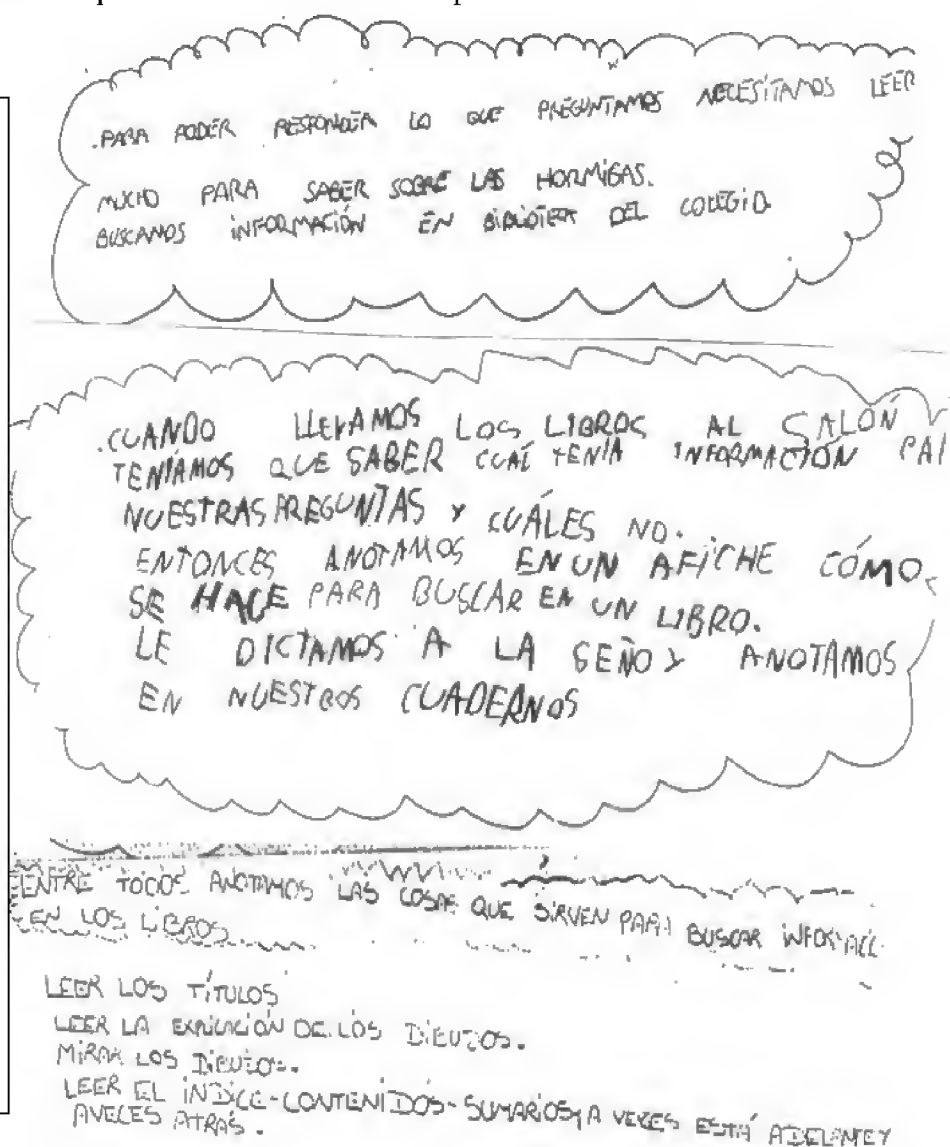 .PARA PODER RESPONDER LO QUE PREGUNTAMOS NECESITAMOS LEER
MUCHO PARA SABER SOBRE LAS HORMIGAS.
BUSCAMOS INFORMACIÓN EN BIBLIOTECA DEL COLEGIO.
.CUANDO LLEVAMOS LOS LIBROS AL SALÓN Y
TENÍAMOS QUE SABER CUÁL TENÍA INFORMACIÓN PAR
NUESTRAS PREGUNTAS Y CUÁLES NO.
ENTONCES ANOTAMOS EN UN AFICHE CÓMO
SE HACE PARA BUSCAR EN UN LIBRO.
LE DICTAMOS A LA SEÑO Y ANOTAMOS
EN NUESTROS CUADERNOS
ENTRE TODOS ANOTAMOS LAS COSAS QUE SIRVEN PARA BUSCAR
EN LOS LIBROS
LEER LOS TÍTULOS
LEER LA EXPLICACIÓN DE LOS DIBUJOS.
MIRAR LOS DIBUJOS.
LEER EL ÍNDICE-CONTENIDOS-SUMARIOS, A VECES ESTÁ ADELANTE Y
AVECES ATRÁS.